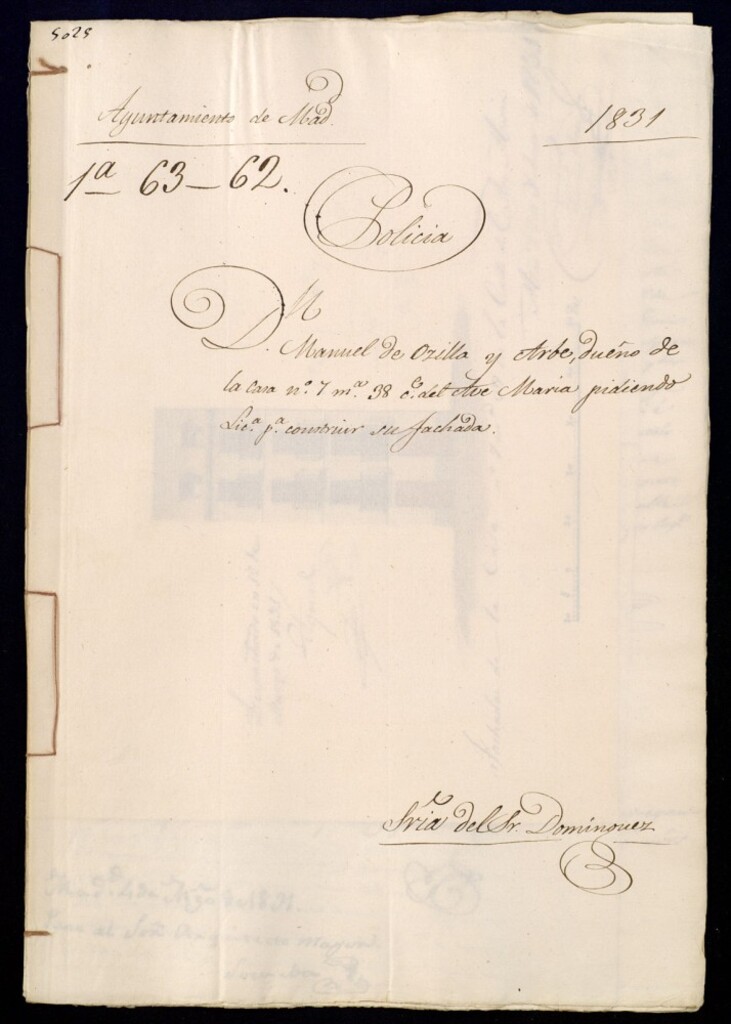 5025
Ayuntamiento de Mad.
1831
1ª 63-62.
Policia
D. Manuel de Ozilla y Arbe, dueño de
la casa nº. 7 mª. 38 c.e del Ave Maria pidiendo
Lic.ª p.ª construir su fachada.
Sria del Sr. Dominguez